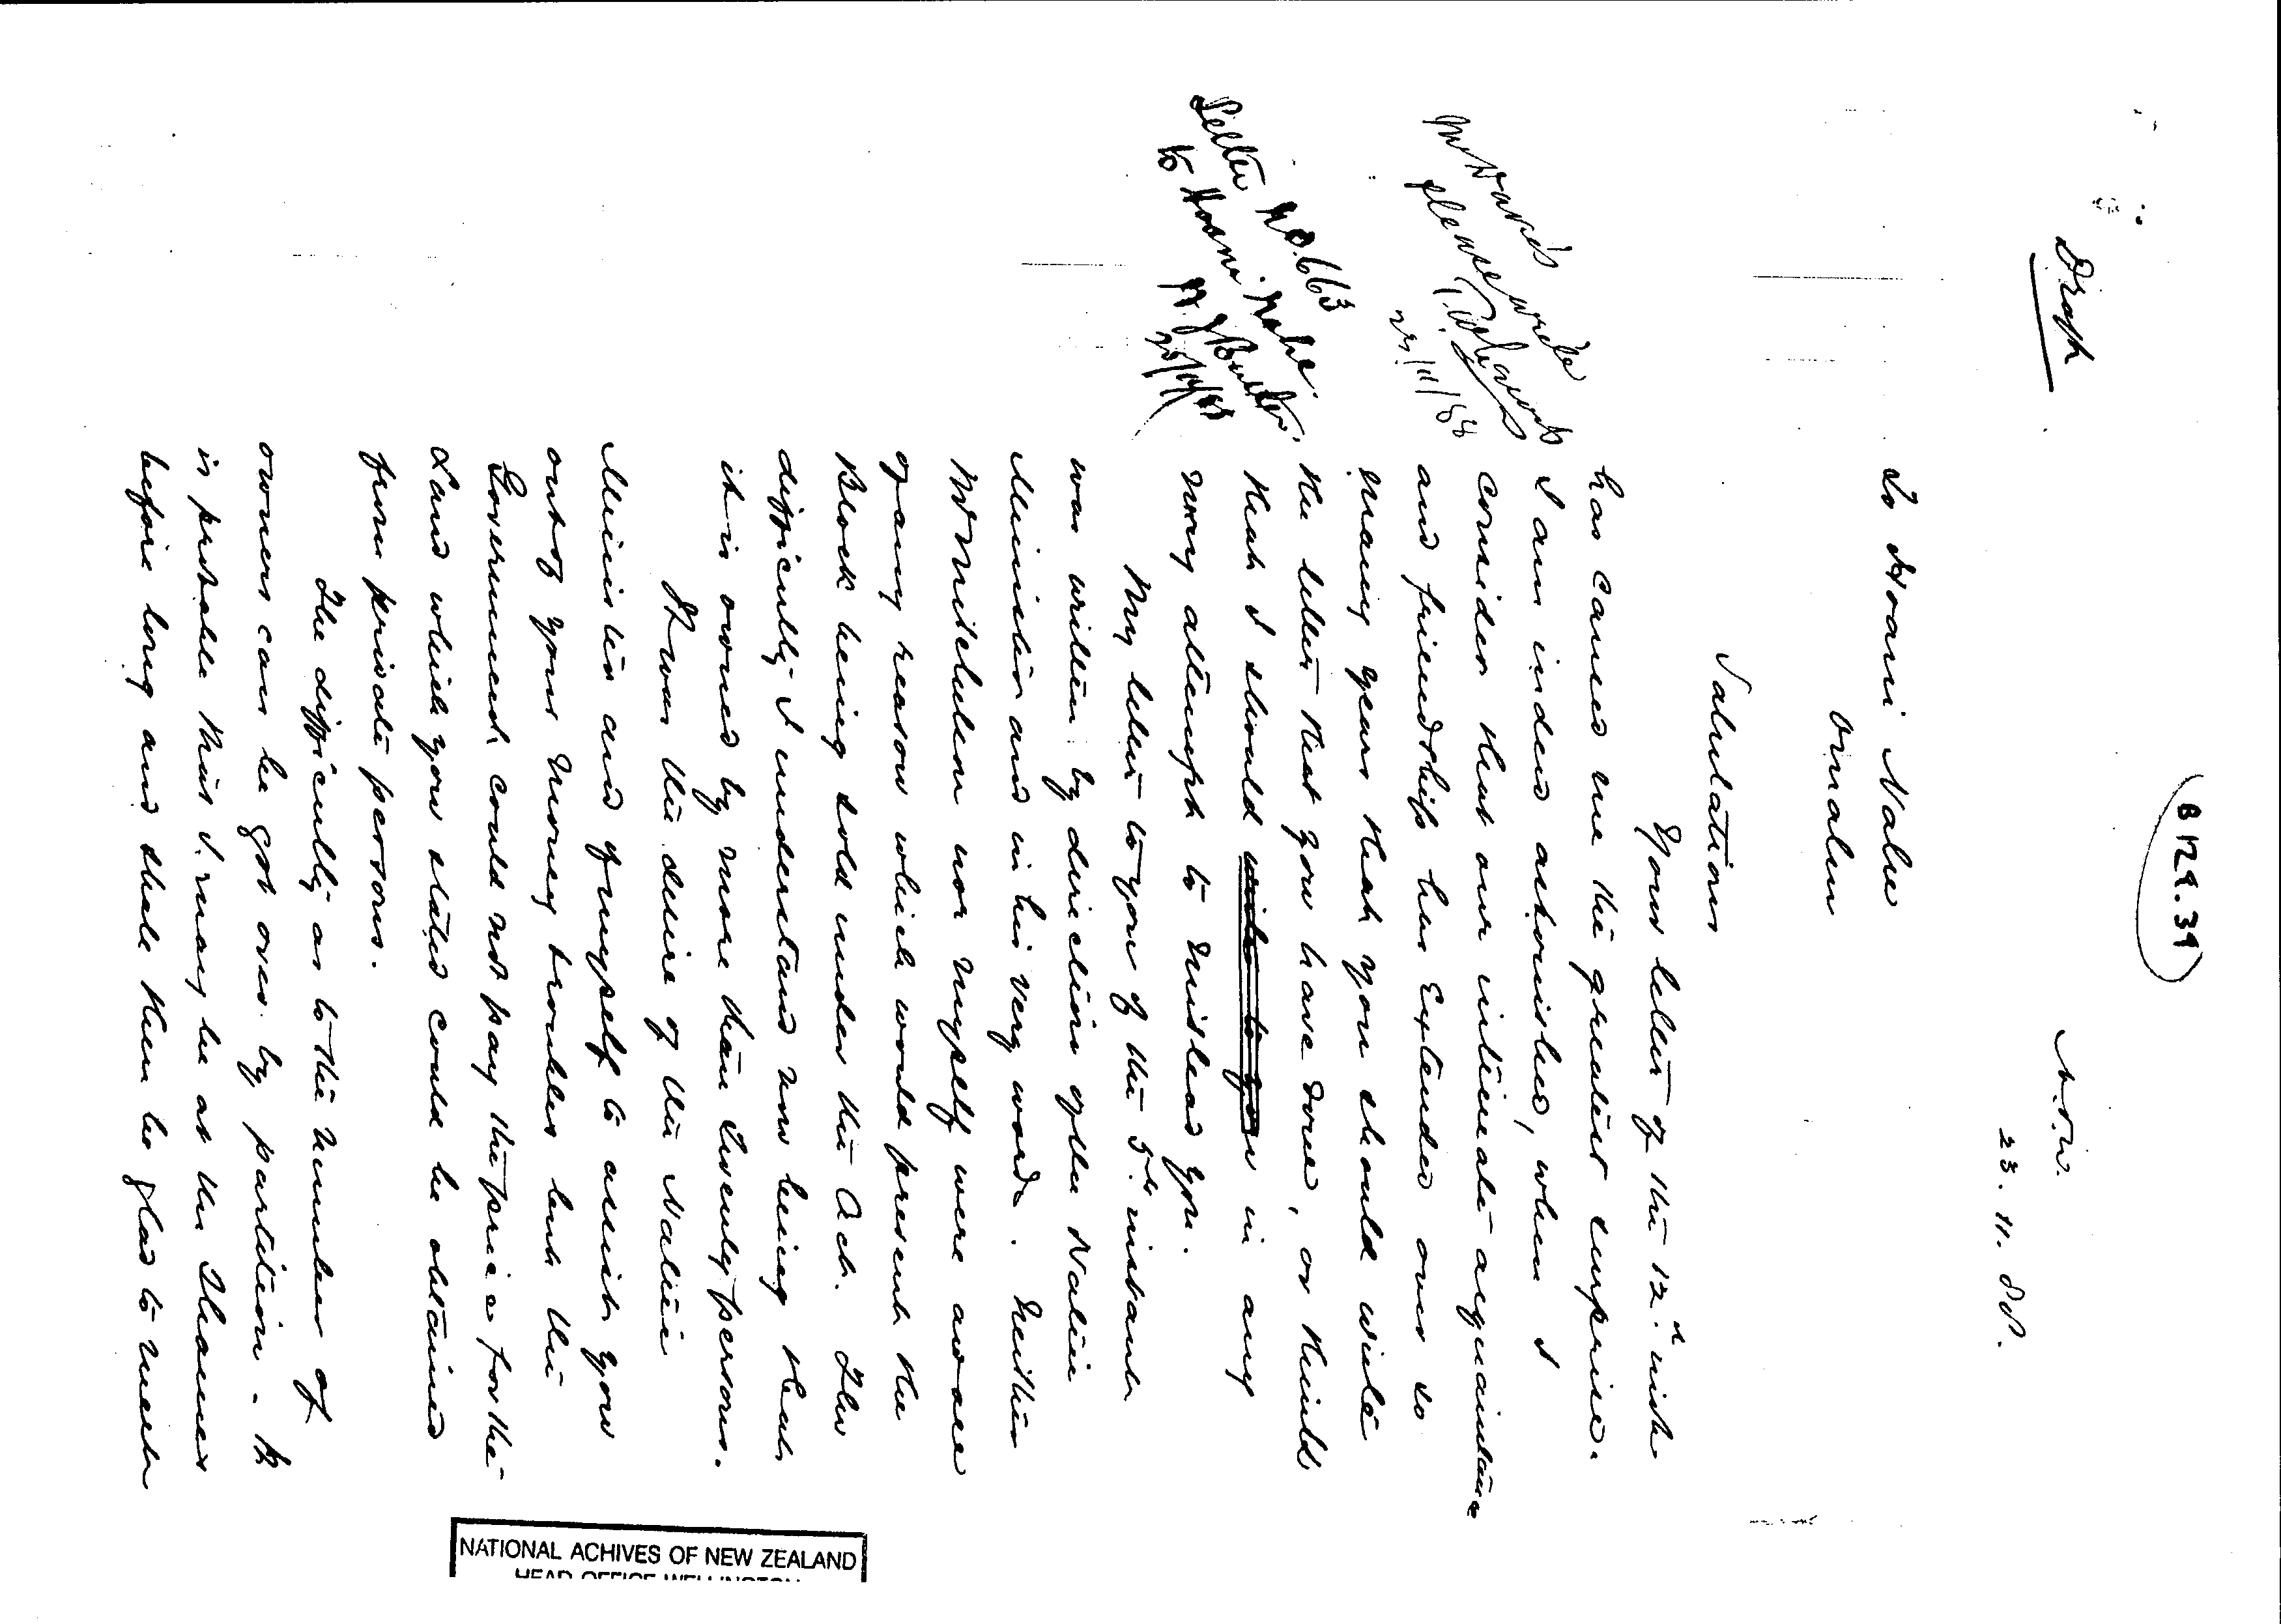 B 129.39
Draft
N.O.W.
23. 11. 88.
To Hoani Nahe
Omahu
Salutations
Your letter of the 12th inst
has caused me the greatest surprise.
I am indeed astonished, when I
consider that our intimate acquaintance
and friendship has extended over so
many years that you should write
the letter that you have done, or think
that I should write to you in any
way attempt to mislead you.
My letter to you of the 5th instant
was written by direction of the Native
Minister and in his very words. Neither
Mr Mitchelson nor myself were aware
of any reason which would prevent the
Block being sold under the Act. The
difficulty I understand now being that
it is owned by more than Twenty persons.
It was the desire of the Native
Minister and of myself to assist you
out of your money troubles but the
Government could not pay the price for the
Land which you stated could be obtained
from private persons.
The difficulty as to the number of
owners can be got over by partition. It
is probable that I may be at the Thames
before long and shall then be glad to meet
Mr Davies
please write
23/11/88
Letter No. 663
to Hoani Nahe.
W. J. Butler.
NATIONAL ACHIVES OF NEW ZEALAND
HEAD OFFICE WELLINGTON